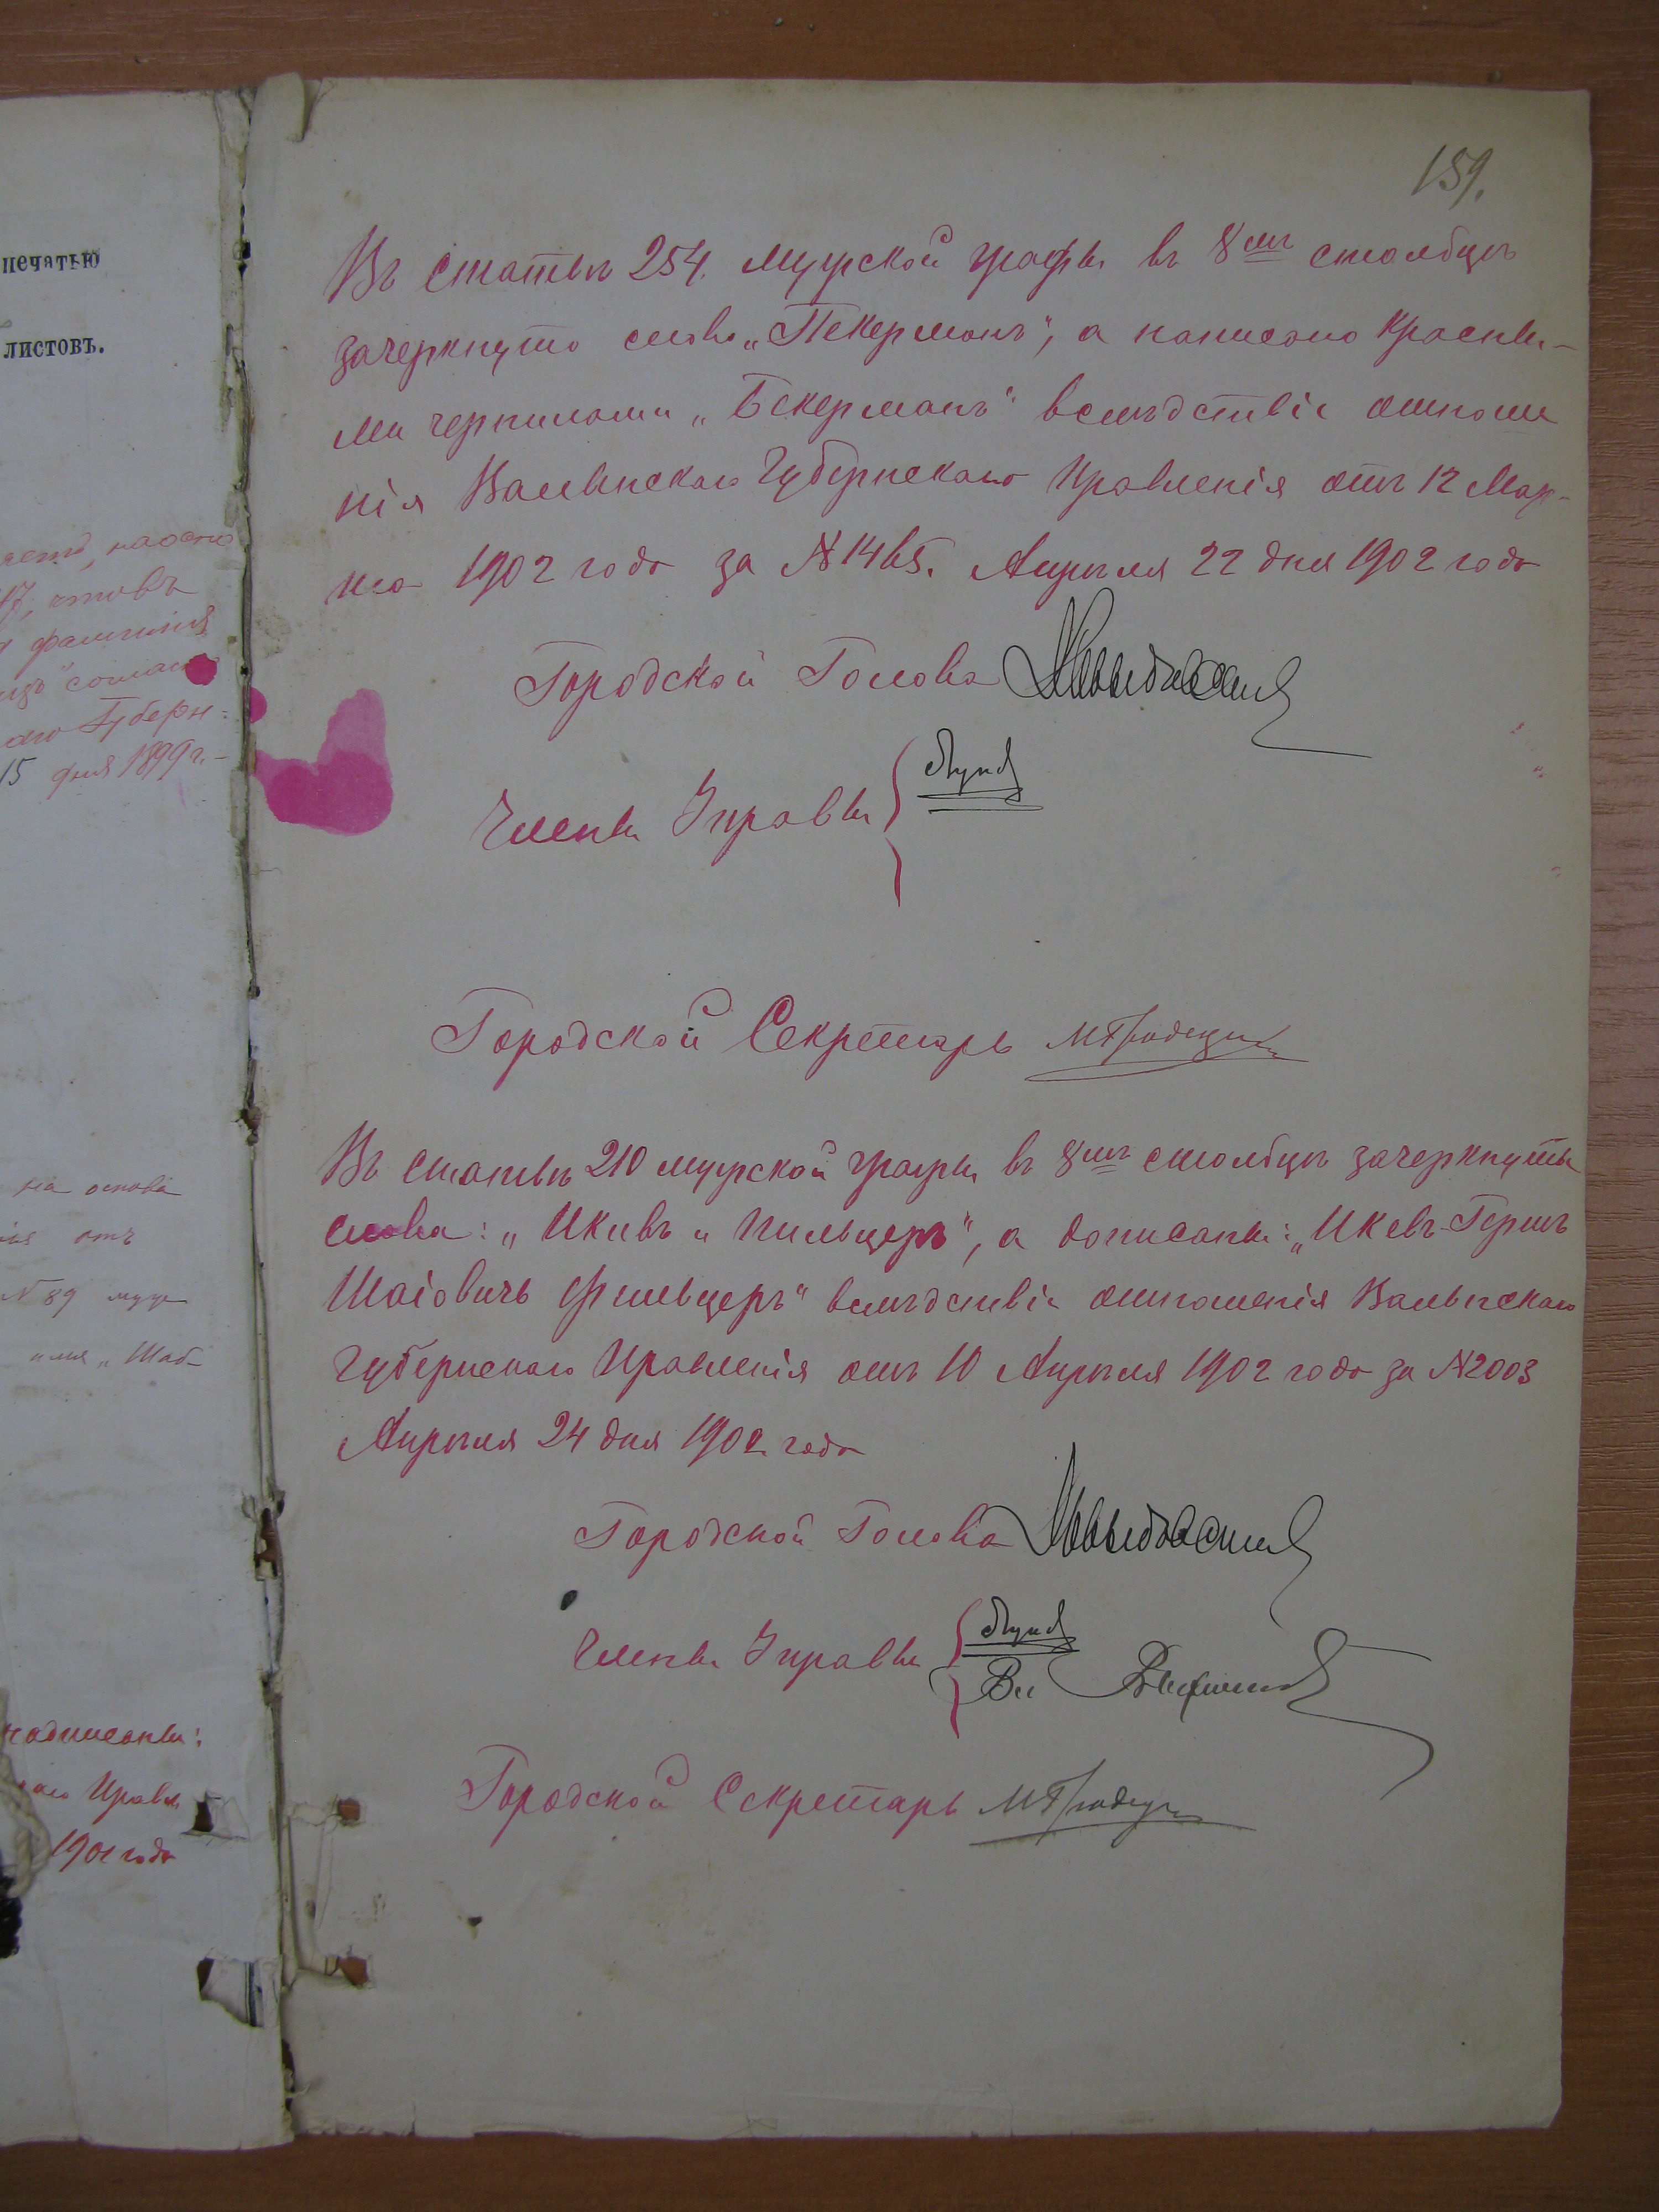 печатью
листовъ.
фамилия
Губерн=
15 дня 1899 г.
на основа
отъ
N 89 муж
имя „Шаб-
надписаны:
1901 года
159.
Въ статьѣ 254. мужской графы въ 8мъ столбцѣ
зачеркнуто слово „Пекерманъ", а написано красны-
ми чернилами „Бекерманъ" вслѣдствіе отноше
нія Волынскаго Губернскаго Правленія отъ 12 Мар-
та 1902 года за N 1465. Апрѣля 22 дня 1902 года
Городской Голова
Члены Управы
Городской Секретарь
Въ статьѣ 210 мужской графы въ 8мъ столбцѣ зачеркнуты
слова: „Икивъ и Пильцеръ", а дописаны: „Икевъ-Гершъ
Шаіовичъ Фильцеръ" вслѣдствіе отношенія Волынскаго
Губернскаго Правленія отъ 10 Апрѣля 1902 года за N 2003
Апрѣля 24 дня 1902 года
Городской Голова
Члены Управы
Городской Секретарь